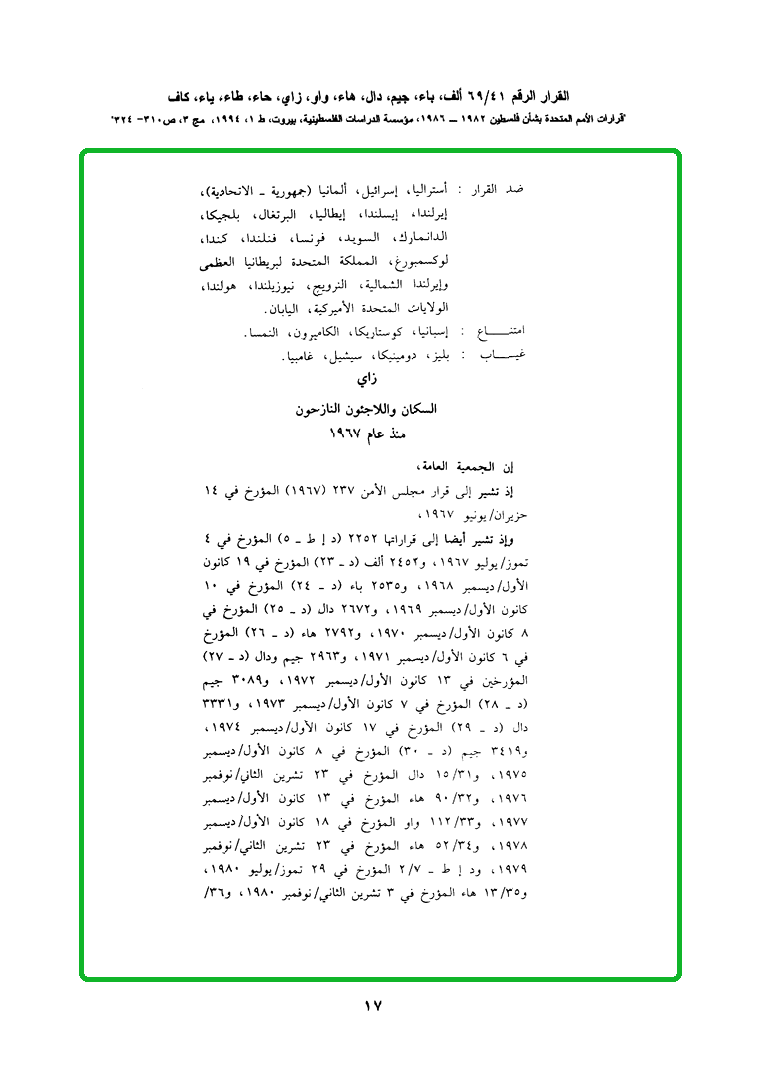 القرار الرقم ٦٩/٤١ ألف، باء، جيم، دال، هاء، واو، زاي، حاء، طاء، ياء، كاف
"قرارات الأمم المتحدة بشأن فلسطين ١٩٨٢ ـ ١٩٨٦، مؤسسة الدراسات الفلسطينية، بيروت، ط ١، ١٩٩٤، مج ٣، ص٣١٠- ٣٢٤"
ضد القرار : أستراليا، إسرائيل، ألمانيا (جمهورية ـ الاتحادية)،
إيرلندا، إيسلندا، إيطاليا، البرتغال، بلجيكا،
الدانمارك، السويد، فرنسا، فنلندا، كندا،
لوكسمبورغ، المملكة المتحدة لبريطانيا العظمى
وإيرلندا الشمالية، النرويج، نيوزيلندا، هولندا،
الولايات المتحدة الأميركية، اليابان.
امتنـــاع : إسبانيا، كوستاريكا، الكاميرون، النمسا.
غيـــاب : بليز، دومينيكا، سيشيل، غامبيا.
زاي
السكان واللاجئون النازحون
منذ عام ١٩٦٧
إن الجمعية العامة،
إذ تشير إلى قرار مجلس الأمن ٢٣٧ (١٩٦٧) المؤرخ في ١٤
حزيران/يونيو ١٩٦٧،
وإذ تشير أيضا إلى قراراتها ٢٢٥٢ (د إ ط ـ ٥) المؤرخ في ٤
تموز/يوليو ١٩٦٧، و٢٤٥٢ ألف (د ـ ٢٣) المؤرخ في ١٩ كانون
الأول/ديسمبر ١٩٦٨، و٢٥٣٥ باء (د ـ ٢٤) المؤرخ في ١٠
كانون الأول/ديسمبر ١٩٦٩، و٢٦٧٢ دال (د ـ ٢٥) المؤرخ في
٨ كانون الأول/ديسمبر ١٩٧٠، و٢٧٩٢ هاء (د ـ ٢٦) المؤرخ
في ٦ كانون الأول/ديسمبر ١٩٧١، و٢٩٦٣ جيم ودال (د ـ ٢٧)
المؤرخين في ١٣ كانون الأول/ديسمبر ١٩٧٢، و٣٠٨٩ جيم
(د ـ ٢٨) المؤرخ في ٧ كانون الأول/ديسمبر ١٩٧٣، و٣٣٣١
دال (د ـ ٢٩) المؤرخ في ١٧ كانون الأول/ديسمبر ١٩٧٤،
و٣٤١٩ جيم (د ـ ٣٠) المؤرخ في ٨ كانون الأول/ديسمبر
١٩٧٥، و١٥/٣١ دال المؤرخ في ٢٣ تشرين الثاني/نوفمبر
١٩٧٦، و٩٠/٣٢ هاء المؤرخ في ١٣ كانون الأول/ديسمبر
١٩٧٧، و١١٢/٣٣ واو المؤرخ في ١٨ كانون الأول/ديسمبر
١٩٧٨، و٥٢/٣٤ هاء المؤرخ في ٢٣ تشرين الثاني/نوفمبر
١٩٧٩، ود إ ط ـ ٢/٧ المؤرخ في ٢٩ تموز/يوليو ١٩٨٠،
و١٣/٣٥ هاء المؤرخ في ٣ تشرين الثاني/نوفمبر ١٩٨٠، و٣٦/
١٧